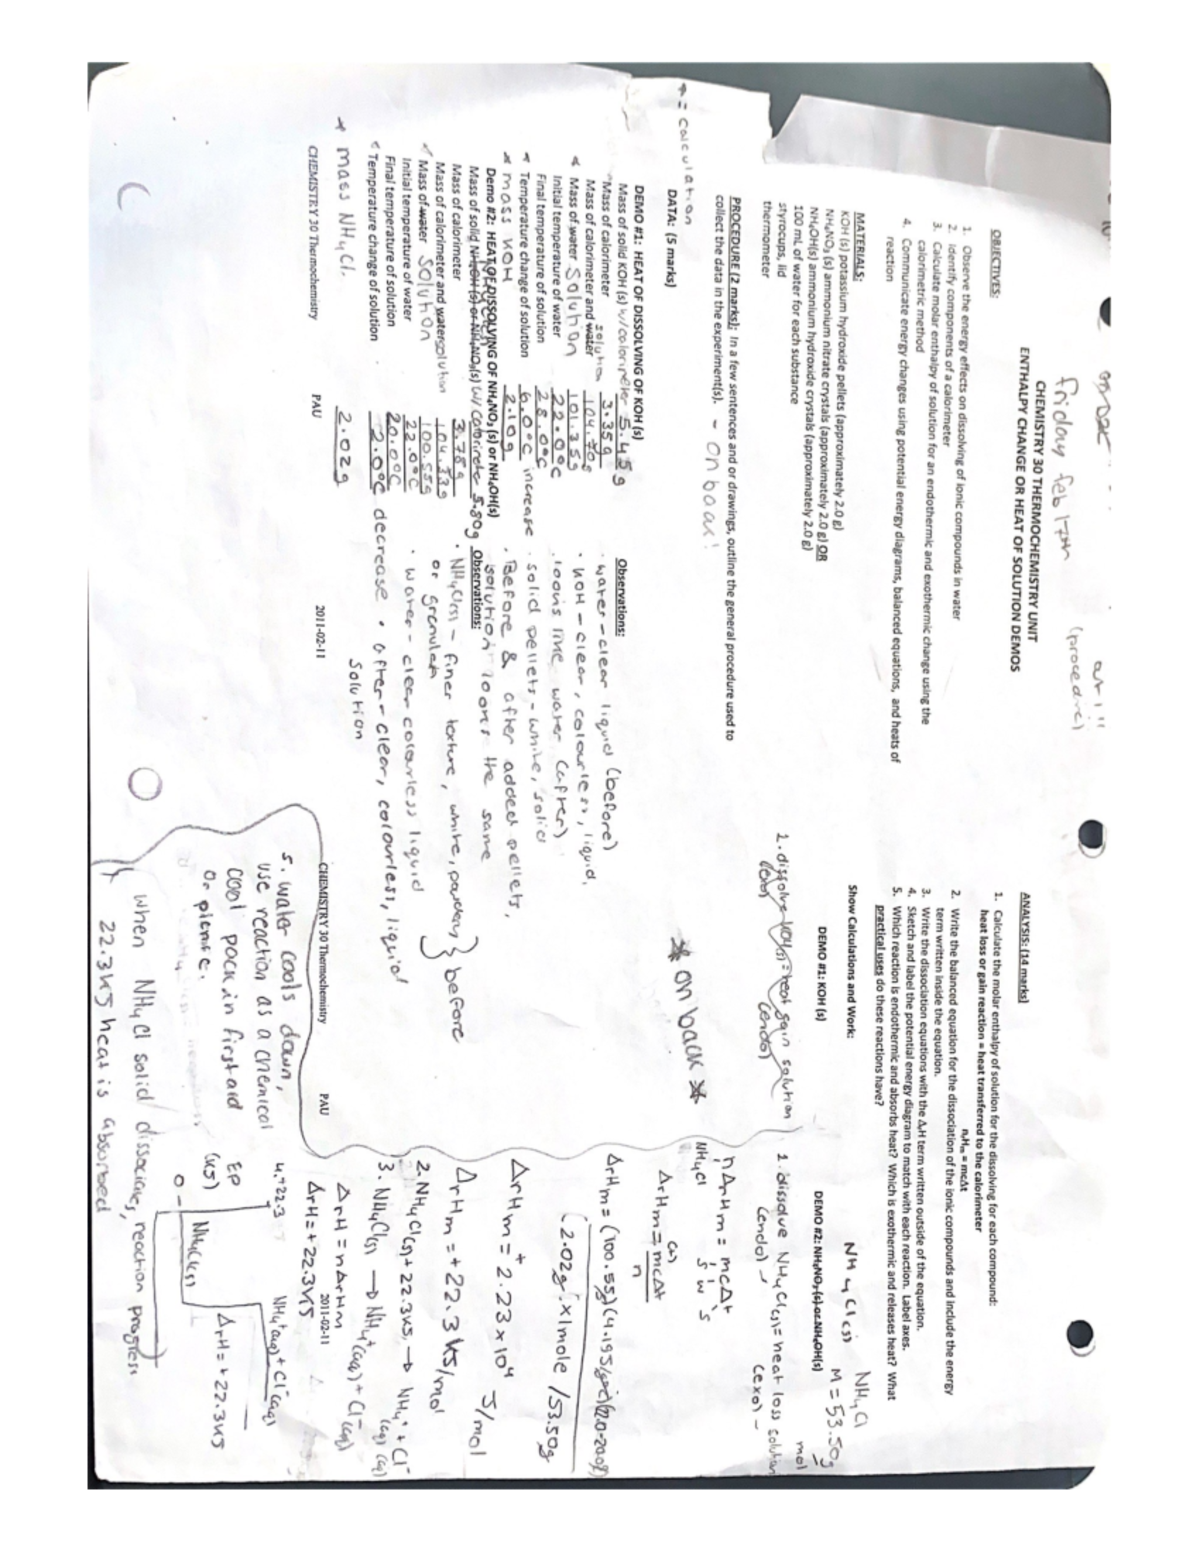 Friday Feb 17th
(procedure)
CHEMISTRY 30 THERMOCHEMISTRY UNIT
ENTHALPY CHANGE OR HEAT OF SOLUTION DEMOS
OBJECTIVES:
1. Observe the energy effects on dissolving of ionic compounds in water
2. Identify components of a calorimeter
3. Calculate molar enthalpy of solution for an endothermic and exothermic change using the
calorimetric method
4. Communicate energy changes using potential energy diagrams, balanced equations, and heats of
reaction
MATERIALS:
KOH (s) potassium hydroxide pellets (approximately 2.0 g)
NH₄NO₃ (s) ammonium nitrate crystals (approximately 2.0 g) OR
NH₄OH(s) ammonium hydroxide crystals (approximately 2.0 g)
100 mL of water for each substance
styrocups, lid
thermometer
PROCEDURE (2 marks): In a few sentences and or drawings, outline the general procedure used to
collect the data in the experiment(s). - on back!
* = calculation
DATA: (5 marks)
DEMO #1: HEAT OF DISSOLVING OF KOH (s)
Mass of solid KOH (s) w/calorimeter 5.45g
Mass of calorimeter 3.35g
Mass of calorimeter and water solution 104.70g
* Mass of water solution 101.35g
Initial temperature of water 22.0°C
Final temperature of solution 28.0°C
* Temperature change of solution 6.0°C increase
* mass KOH 2.10g
Observations:
· water - clear liquid (before)
· KOH - clear, colourless, liquid,
looks like water (after)
· solid pellets - white, solid
· Before & after added pellets,
solution looks the same
Demo #2: HEAT OF DISSOLVING OF NH₄NO₃ (s) or NH₄OH(s)
Mass of solid NH₄OH (s) or NH₄NO₃(s) w/ calorimeter 5.80g
Mass of calorimeter 3.78g
Mass of calorimeter and water solution 104.33g
Mass of water solution 100.55g
Initial temperature of water 22.0°C
Final temperature of solution 20.0°C
Temperature change of solution 2.0°C decrease
* mass NH4Cl. 2.02g
Observations:
· NH4Cl(s) - finer texture, white, powdery } before
or granular
· water - clear colourless liquid
· after - clear, colourless, liquid
solution
CHEMISTRY 30 Thermochemistry PAU 2011-02-11
ANALYSIS: (14 marks)
1. Calculate the molar enthalpy of solution for the dissolving for each compound:
heat loss or gain reaction = heat transferred to the calorimeter
nₛHₘ = mcΔt
2. Write the balanced equation for the dissociation of the ionic compounds and include the energy
term written inside the equation.
3. Write the dissociation equations with the ΔᵣH term written outside of the equation.
4. Sketch and label the potential energy diagram to match with each reaction. Label axes.
5. Which reaction is endothermic and absorbs heat? Which is exothermic and releases heat? What
practical uses do these reactions have?
Show Calculations and Work:
DEMO #1: KOH (s)
1. dissolve KOH(s) = heat gain solution
(exo) (endo)
* on back *
NH4Cl(s)
NH4Cl
M = 53.50g
mol
DEMO #2: NH₄NO₃ (s) or NH₄OH(s)
1. dissolve NH4Cl(s) = heat loss solution
(endo) - (exo) -
nΔrHm = mcΔt
NH4Cl s w s
ΔrHm = mcΔt
n
ΔrHm = (100.55g)(4.19J/g°C)(22.0-20.0°C)
(2.02g x 1mole / 53.50g
ΔrHm = +2.23 x 10⁴ J/mol
ΔrHm = +22.3 kJ/mol
2. NH4Cl(s) + 22.3kJ → NH4⁺ + Cl⁻
(aq) (aq)
3. NH4Cl(s) → NH4⁺(aq) + Cl⁻(aq)
ΔrH = nΔrHm
ΔrH = +22.3kJ
4. +22.3
EP
(kJ)
0
NH4Cl(s)
NH4⁺(aq) + Cl⁻(aq)
ΔrH = +22.3kJ
reaction progress
CHEMISTRY 30 Thermochemistry PAU 2011-02-11
5. water cools down,
use reaction as a chemical
cool pack in first aid
or picnic.
when NH4Cl solid dissociates,
22.3kJ heat is absorbed